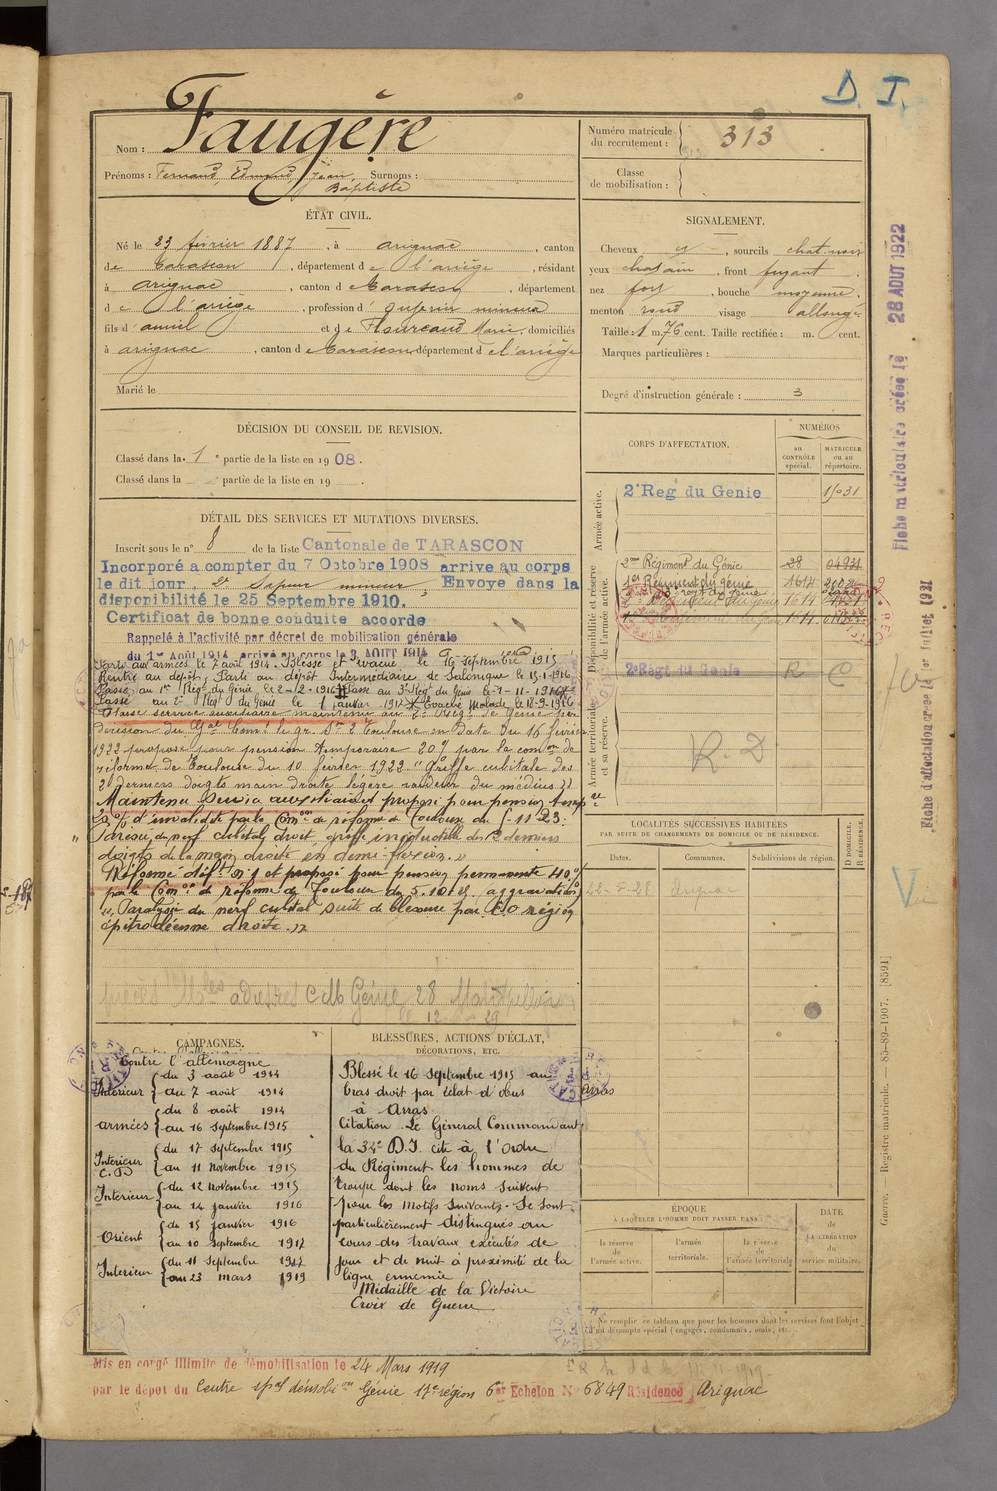 D. I.
Nom : Faugère
Prénoms : Fernand, Edmond, Jean, Surnoms :
Baptiste
Numéro matricule
du recrutement :
313
Classe
de mobilisation :
ÉTAT CIVIL.
Né le 23 février 1887, à arignac, canton
de Tarascon, département de l'ariège, résidant
à arignac, canton de Tarascon, département
de l'ariège, profession d'
fils d' et de Marie, domiciliés
à arignac, canton de Tarascon, département de l'ariège
Marié le
SIGNALEMENT.
Cheveux , sourcils chat. noir
yeux chatain, front fuyant.
nez fort, bouche moyenne.
menton rond visage allongé
Taille : 1 m. 76 cent. Taille rectifiée : m. cent.
Marques particulières :
Degré d'instruction générale : 3
DÉCISION DU CONSEIL DE REVISION.
Classé dans la 1e partie de la liste en 1908.
Classé dans la partie de la liste en 19 .
DÉTAIL DES SERVICES ET MUTATIONS DIVERSES.
Inscrit sous le n° 8 de la liste Cantonale de TARASCON
Incorporé a compter du 7 Octobre 1908, arrive au corps
le dit jour, 2e Sapeur mineur, Envoye dans la
disponibilité le 25 Septembre 1910.
Certificat de bonne conduite accorde
Rappelé à l'activité par décret de mobilisation générale
du 1er Août 1914 arrivé au corps le 3 AOUT 1914
Parti aux armées le 7 août 1914. Blessé et évacué le 16 septembre 1915
Rentré au dépôt, Parti au dépôt Intermédiaire de Salonique le 15-1-1916
Passé au 1er Régt du Génie le 2-2-1916 Passé au 3e Régt du Génie le 1-11-1916
Passé au 2e Régt du Génie le 1 janvier 1917 Evacué Malade le 18-9-1916
Classé service auxiliaire maintenu au 2e Régt de Génie par
décision du Gal Comt le gr. Son de Toulouse en date du 16 février
1922 proposé pour pension temporaire 20% par la comon de
réforme de Toulouse du 10 février 1922 "Griffe cubitale des
2 derniers doigts main droite légère raideur du médius"
Maintenu Service auxiliaire et proposé pour pension tempre
20% d'invalidité par la Comon de réforme de Toulouse du 23:
"Parésie du nerf cubital droit, griffe irréductible des 2 derniers
doigts de la main droite en demi-flexion."
Réformé défif n° 1 et proposé pour pension permanente 40%
par la Comon de réforme de Toulouse du 5.10.25, aggravation
"Paralysie du nerf cubital suite de blessure par E.O région
épitrochléenne droite."
adressées C M Génie 28 Montpellier
le 12 29
CORPS D'AFFECTATION.
NUMÉROS
AU CONTRÔLE spécial.
MATRICULE OU AU répertoire.
Armée active.
2e Reg du Genie
Disponibilité et réserve
de l'armée active.
2me Régiment du Génie 28
1er Régiment du génie 1614
Armée territoriale
et sa réserve.
2e Régt du Genie R C
R. D
LOCALITÉS SUCCESSIVES HABITÉES
PAR SUITE DE CHANGEMENTS DE DOMICILE OU DE RÉSIDENCE.
Dates. Communes. Subdivisions de région. D DOMICILE. R RÉSIDENCE.
Arignac
CAMPAGNES.
Contre l'allemagne
Intérieur du 3 août 1914
au 7 août 1914
armées du 8 août 1914
au 16 septembre 1915
Intérieur du 17 septembre 1915
au 11 novembre 1915
Intérieur du 12 novembre 1915
au 14 janvier 1916
Orient du 15 janvier 1916
au 10 septembre 1917
Intérieur du 11 septembre 1917
au 23 mars 1919
BLESSURES, ACTIONS D'ÉCLAT,
DÉCORATIONS, ETC.
Blessé le 16 septembre 1915 au
bras droit par éclat d'obus
à Arras
Citation Le Général Commandant
la 34e D.I. cite à l'ordre
du Régiment les hommes de
troupe dont les noms suivent
pour les motifs suivants. Se sont
particulièrement distingués au
cours des travaux exécutés de
jour et de nuit à proximité de la
ligne ennemie
Médaille de la Victoire
Croix de Guerre
ÉPOQUE
À LAQUELLE L'HOMME DOIT PASSER DANS :
la réserve de l'armée active.
l'armée territoriale.
la réserve de l'armée territoriale
DATE
de
LA LIBÉRATION
du
service militaire.
Ne remplir ce tableau que pour les hommes dont les services font l'objet
d'un décompte spécial (engagés, condamnés, omis, etc.).
Mis en congé illimité de démobilisation le 24 Mars 1919
par le dépot du Centre spal démobion Génie 17e région 6er Echelon N° 6849 Résidence Arignac
Fiche matriculaire créée le 28 AOUT 1922
Fiche d'affectation créée le 1er Juillet 1921
Guerre. — Registre matricule. — 85-89-1907. [8591]